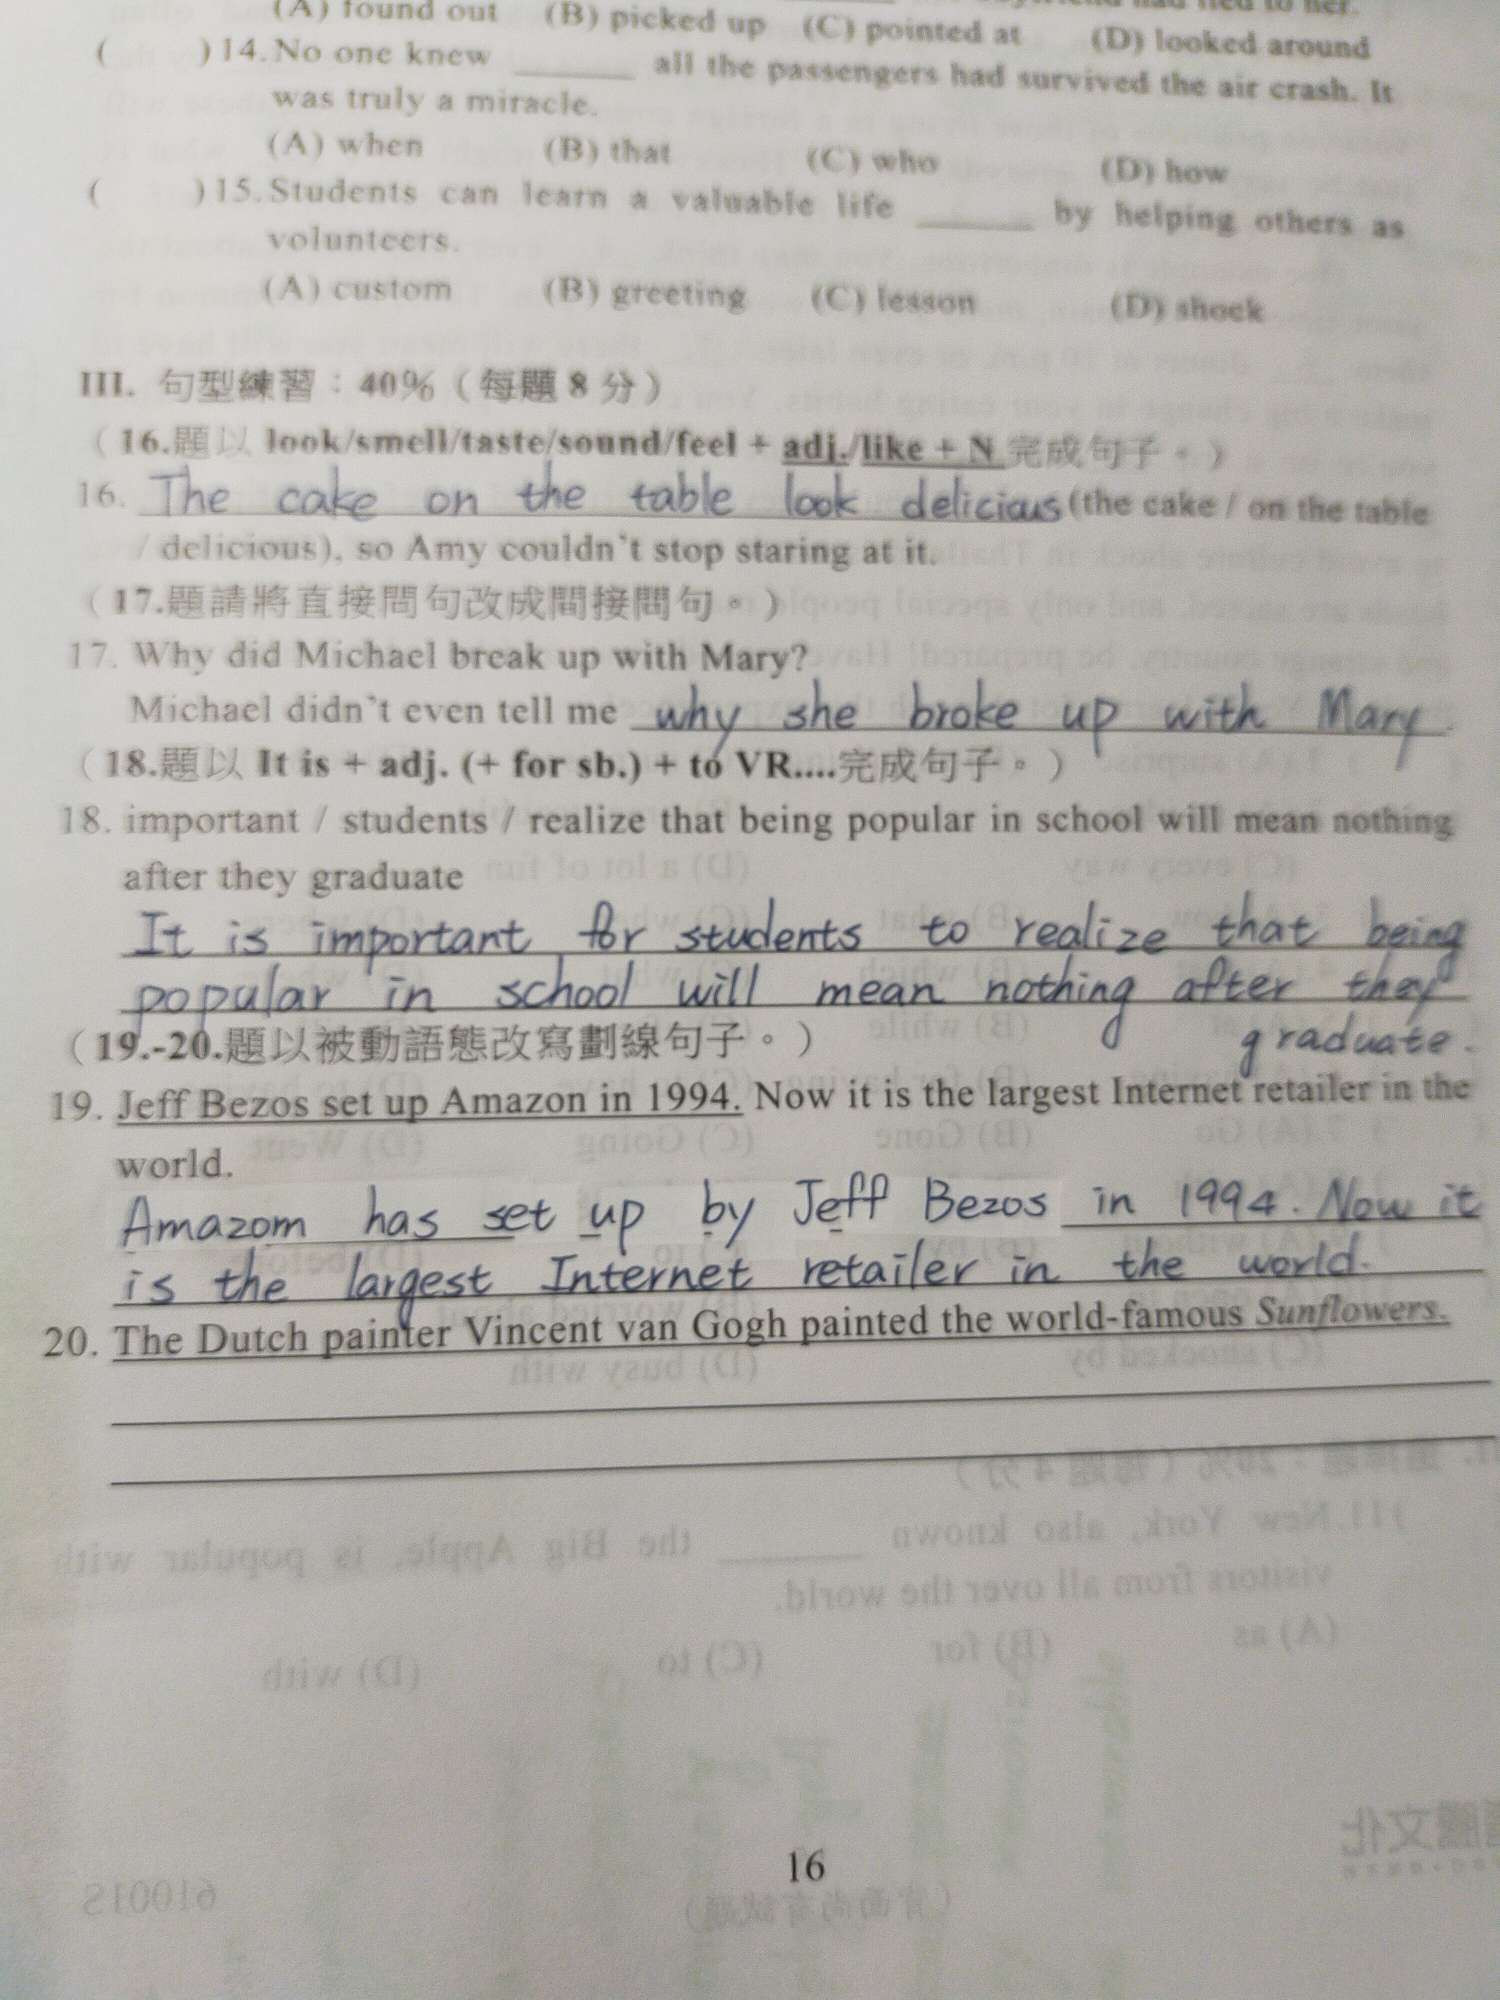 (A) found out (B) picked up (C) pointed at (D) looked around
( )14. No one knew ______ all the passengers had survived the air crash. It
was truly a miracle.
(A) when (B) that (C) who (D) how
( )15. Students can learn a valuable life ______ by helping others as
volunteers.
(A) custom (B) greeting (C) lesson (D) shock
III. 句型練習：40%（每題 8 分）
（16.題以 look/smell/taste/sound/feel + adj./like + N 完成句子。）
16. The cake on the table look delicious (the cake / on the table
/ delicious), so Amy couldn't stop staring at it.
（17.題請將直接問句改成間接問句。）
17. Why did Michael break up with Mary?
Michael didn't even tell me why she broke up with Mary.
（18.題以 It is + adj. (+ for sb.) + to VR....完成句子。）
18. important / students / realize that being popular in school will mean nothing
after they graduate
It is important for students to realize that being
popular in school will mean nothing after they
graduate.
（19.-20.題以被動語態改寫劃線句子。）
19. Jeff Bezos set up Amazon in 1994. Now it is the largest Internet retailer in the
world.
Amazom has set up by Jeff Bezos in 1994. Now it
is the largest Internet retailer in the world.
20. The Dutch painter Vincent van Gogh painted the world-famous Sunflowers.
16